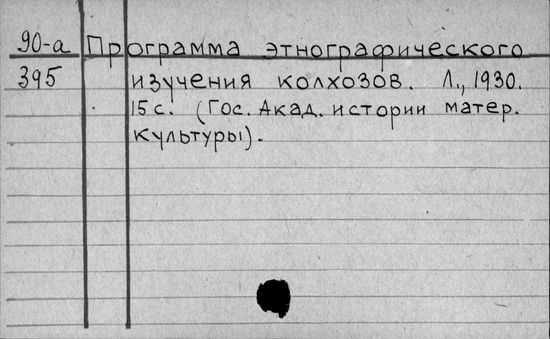 90-а Программа этнографического
395 изучения колхозов. Л., 1930.
15 с. (Гос. Акад. истории матер.
культуры).